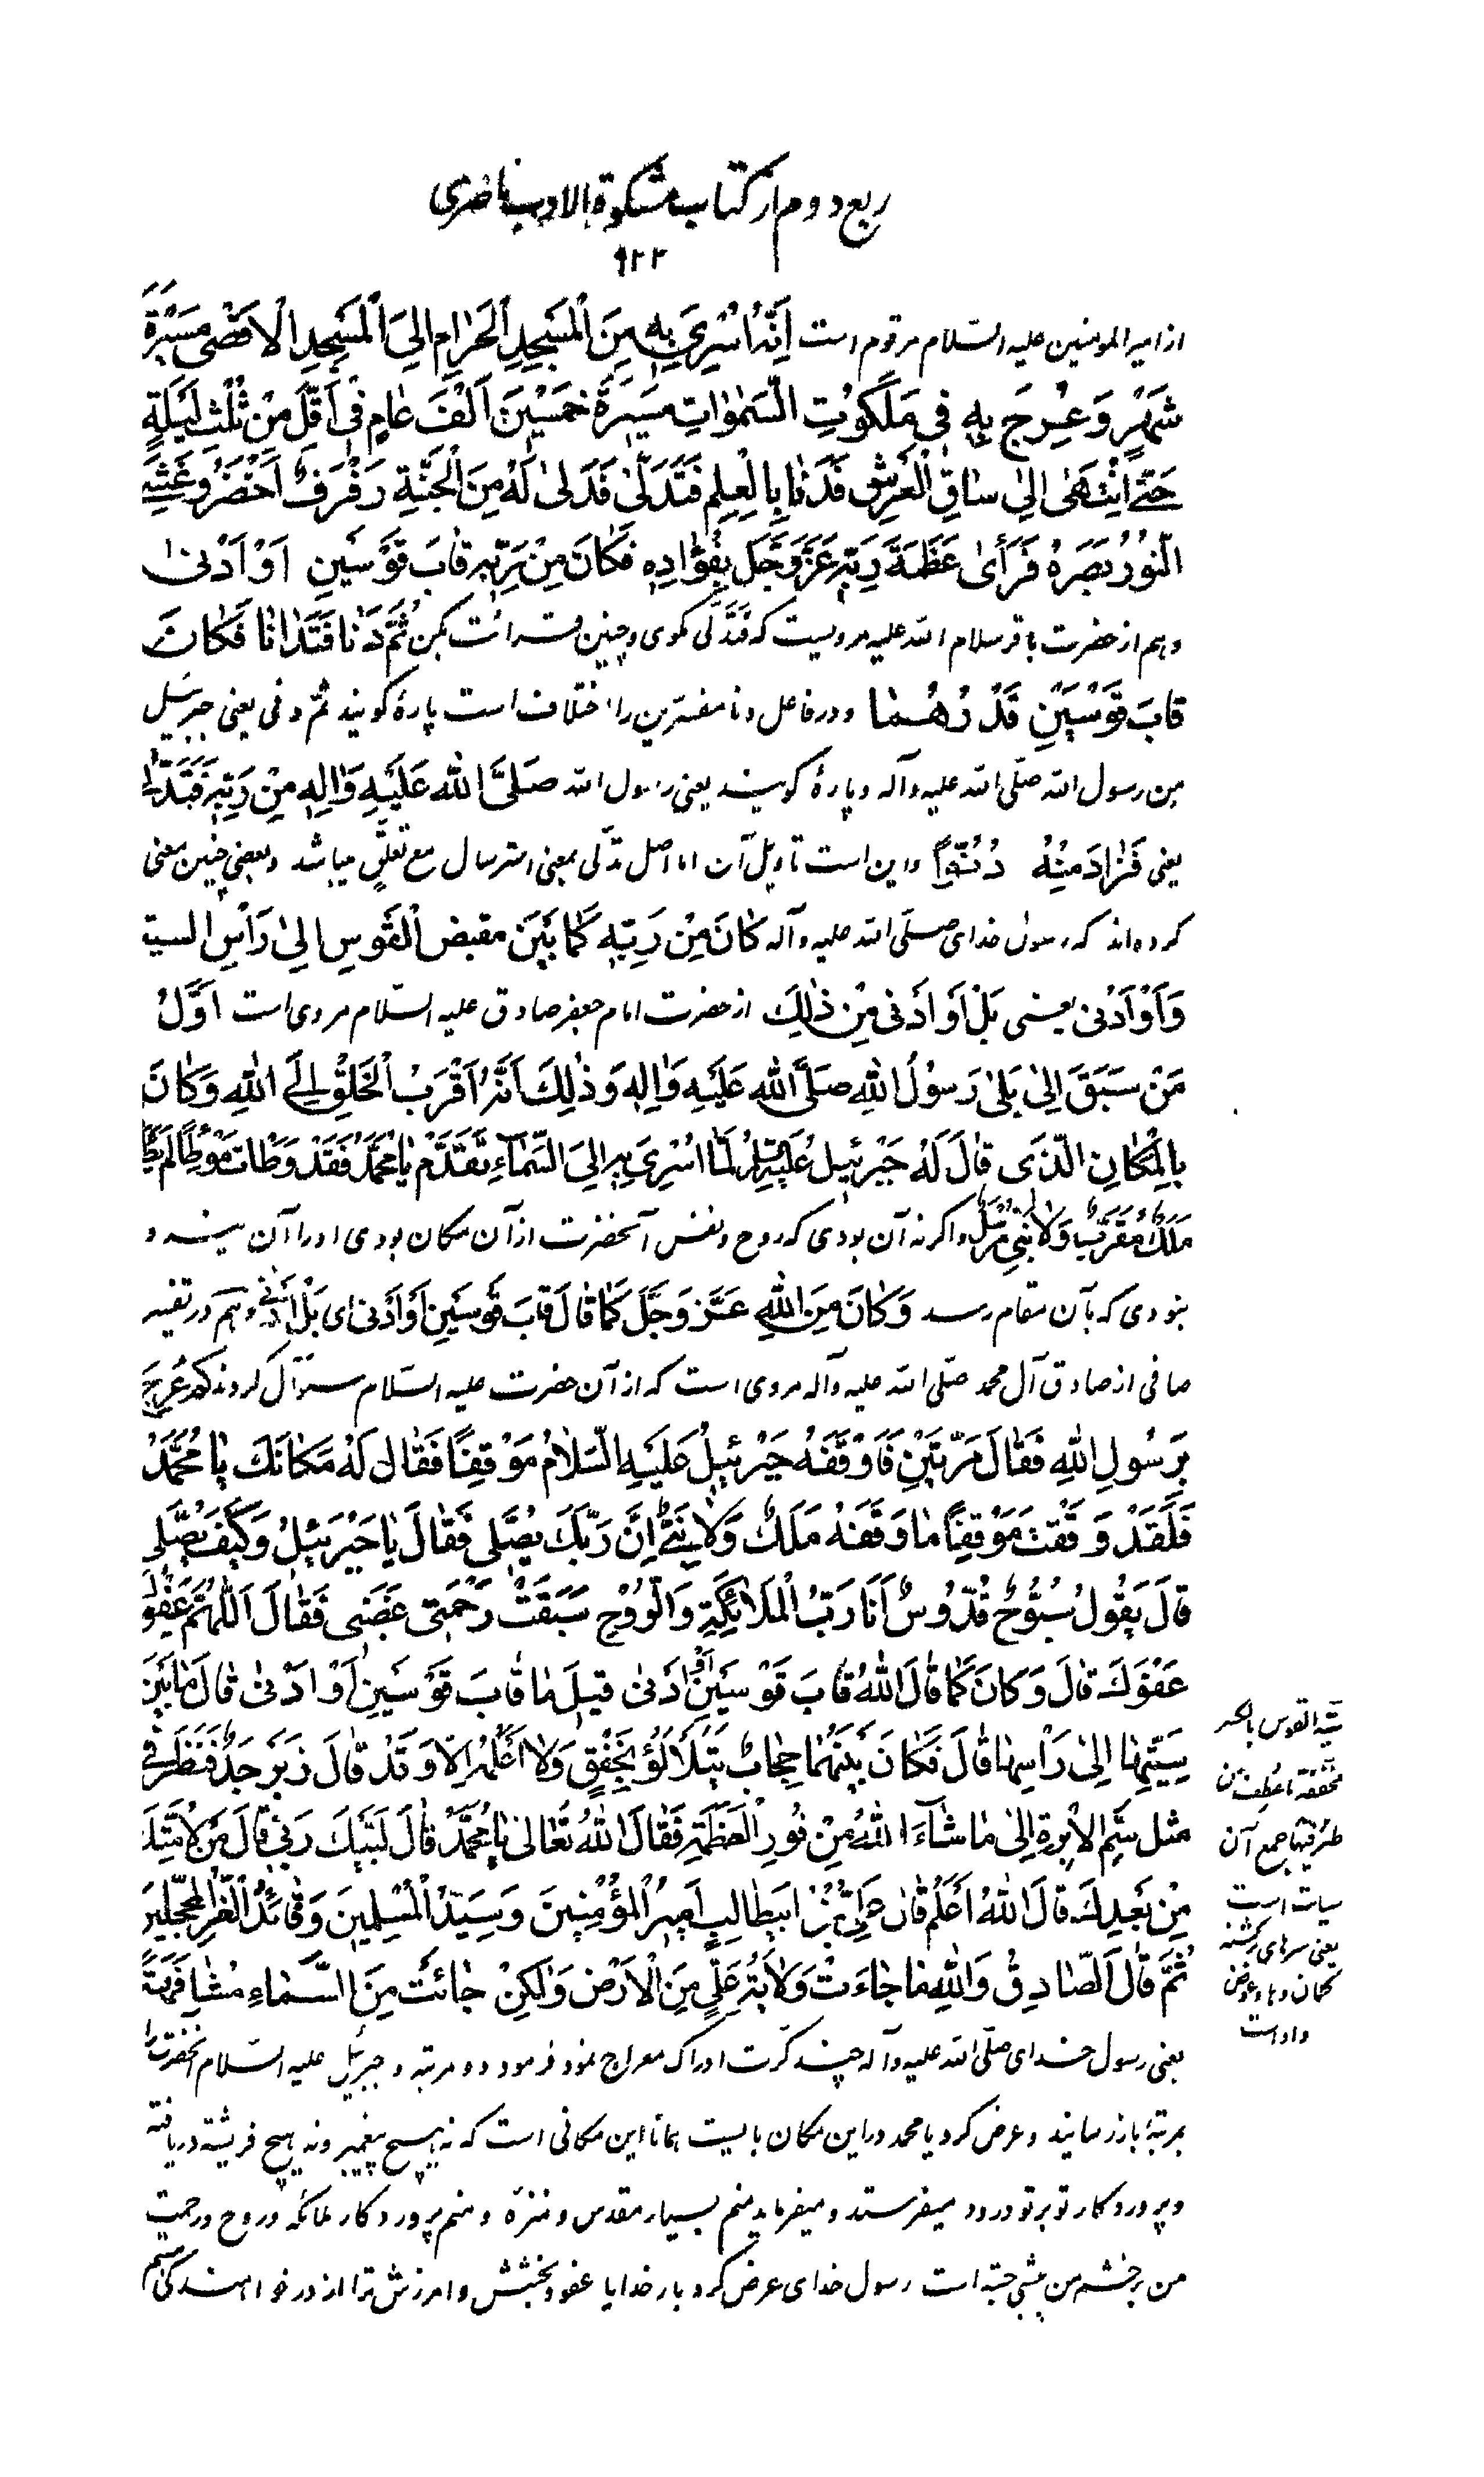 ربع دوم از کتاب مشکوة الادب ناصری
۹۲۲
از امیر المومنین علیه السّلام مرقوم است اَنَّهُ اُسْرِیَ بِهِ مِنَ الْمَسْجِدِ الْحَرٰامِ اِلَی الْمَسْجِدِ الْاَقْصٰی مَسیٖرَةَ
شَهْرٍ وَ عُرِجَ بِهِ فیٖ مَلَکُوتِ السَّمٰوٰاتِ مَسیٖرَةَ خَمْسیٖنَ اَلْفَ عٰامٍ فیٖ اَقَلَّ مِنْ ثُلْثِ لَیْلَةٍ
حَتّٰی انْتَهٰی اِلیٰ سٰاقِ الْعَرْشِ فَدَنٰا بِالْعِلْمِ فَتَدَلّیٰ فَدَلیٰ لَهُ مِنَ الْجَنَّةِ رَفْرَفٌ اَخْضَرُ وَ غَشِیَ
النُّورُ بَصَرَهُ فَرَأیٰ عَظَمَةَ رَبِّهِ عَزَّ وَ جَلَّ بِفُؤٰادِهِ فَکٰانَ مِنْ رَبِّهِ قٰابَ قَوْسَیْنِ اَوْ اَدْنیٰ
و هم از حضرت باقر سلام الله علیه مرویست که فتدلّی مگوی و چنین قرائت بکن ثُمَّ دَنٰا فَتَدٰانٰا فَکٰانَ
قٰابَ قَوْسَیْنِ قَدْرُهُمٰا و در فاعل دنا مفسّرین را اختلاف است پارهٔ گویند ثمّ دنی یعنی جبرئیل
من رسول الله صلّی الله علیه و آله و پارهٔ گویند یعنی رسول الله صَلَّی اللهُ عَلَیْهِ وَ اٰلِهِ مِنْ رَبِّهِ فَتَدَلّیٰ
یعنی فَزٰادَ مِنْهُ دُنُوّاً و این است تاویل آن اما اصل تدلّی بمعنی استرسال مع تعلّقٍ میباشد و بعضی چنین معنی
کرده‌اند که رسول خدای صلّی الله علیه و آله کٰانَ مِنْ رَبِّهِ کَمٰا بَیْنَ مقبض الْقَوْسِ اِلیٰ رَأْسِ السیة
وَ اَوْ اَدْنیٰ یعنی بَلْ اَوْ اَدْنیٰ مِنْ ذٰلِکَ از حضرت امام جعفر صادق علیه السّلام مروی است اَوَّلُ
مَنْ سَبَقَ اِلیٰ بَلیٰ رَسُولُ اللهِ صَلَّی اللهِ عَلَیْهِ وَ اٰلِهِ وَ ذٰلِکَ اَنَّهُ اَقْرَبُ الْخَلْقِ اِلَی اللهِ وَ کٰانَ
بِالْمَکٰانِ الَّذیٖ قٰالَ لَهُ جَبْرَئیٖلُ عَلَیْهِ السَّلٰامُ لَمّٰا اُسْرِیَ بِهِ اِلَی السَّمٰآءِ تَقَدَّمْ یٰا مُحَمَّدُ فَقَدْ وَطَأْتَ مَوْطِئاً لَمْ یَطَأْهُ
مَلَکٌ مُقَرَّبٌ وَ لٰا نَبِیٌّ مُرْسَلٌ و اگر نه آن بودی که روح و نفس آنحضرت از آن مکان بودی او را آن نیرو
نبودی که بآن مقام رسد وَ کٰانَ مِنَ اللهِ عَزَّ وَ جَلَّ کَمٰا قٰالَ قٰابَ قَوْسَیْنِ اَوْ اَدْنیٰ ای بَلْ اَدْنیٰ و هم در تفسیر
صافی از صادق آل محمد صلّی الله علیه و آله مروی است که از آن حضرت علیه السّلام سئوال کردند کَمْ عُرِجَ
بِرَسُولِ اللهِ فَقٰالَ مَرَّتَیْنِ فَاَوْقَفَهُ جَبْرَئیٖلُ عَلَیْهِ السَّلٰامُ مَوْقِفاً فَقٰالَ لَهُ مَکٰانَکَ یٰا مُحَمَّدُ
فَلَقَدْ وَقَفْتَ مَوْقِفاً مٰا وَقَفَهُ مَلَکٌ وَ لٰا نَبِیٌّ اِنَّ رَبَّکَ یُصَلّیٖ فَقٰالَ یٰا جَبْرَئیٖلُ وَ کَیْفَ یُصَلّیٖ
قٰالَ یَقُولُ سُبُّوحٌ قُدُّوسٌ اَنَا رَبُّ الْمَلٰائِکَةِ وَ الرُّوحِ سَبَقَتْ رَحْمَتیٖ غَضَبیٖ فَقٰالَ اَللّٰهُمَّ عَفْوَکَ
عَفْوَکَ قٰالَ وَ کٰانَ کَمٰا قٰالَ اللهُ قٰابَ قَوْسَیْنِ اَوْ اَدْنیٰ قیٖلَ مٰا قٰابَ قَوْسَیْنِ اَوْ اَدْنیٰ قٰالَ مٰا بَیْنَ
سِیَتِهٰا اِلیٰ رَاْسِهٰا قٰالَ فَکٰانَ بَیْنَهُمٰا حِجٰابٌ یَتَلَأْلَؤُ بِخَفْقٍ وَ لٰا اَعْلَمُهُ اِلّٰا وَ قَدْ قٰالَ زَبَرْجَدٌ فَنَظَرَ فیٖ
مثل سَمِّ الْاِبْرَةِ اِلیٰ مٰا شٰآءَ اللهُ مِنْ نُورِ الْعَظَمَةِ فَقٰالَ اللهُ تَعٰالیٰ یٰا مُحَمَّدُ قٰالَ لَبَّیْکَ رَبّیٖ قٰالَ مَنْ لِاُمَّتِکَ
مِنْ بَعْدِکَ قٰالَ اللهُ اَعْلَمُ قٰالَ عَلِیُّ بْنُ ابیٖطٰالِبٍ اَمیٖرُ الْمُؤْمِنیٖنَ وَ سَیِّدُ الْمُسْلِمیٖنَ وَ قٰائِدُ الْغُرِّ الْمُحَجَّلیٖنَ
ثُمَّ قٰالَ الصّٰادِقُ وَ اللهِ مٰا جٰاءَتْ وَلٰایَةُ عَلِیٍّ مِنَ الْاَرْضِ وَ لٰکِنْ جٰائَتْ مِنَ السَّمٰاءِ مُشٰافَهَةً
یعنی رسول خدای صلّی الله علیه و آله چند کرّت ادراک معراج نمود فرمود دو مرتبه و جبرئیل علیه السّلام آنحضرت را
بمرتبهٔ باز رسانید و عرض کرد یا محمد در این مکان بایست همانا این مکانی است که نه هیچ پیغمبر و نه هیچ فریشته دریافته
و پروردگار تو بر تو درود میفرستد و میفرماید منم بسیار مقدس و منزّه و منم پروردگار ملائکه و روح و رحمت
من بر خشم من پیشی جسته است رسول خدای عرض کرد بار خدایا عفو و بخشش و امرزش ترا از در خواهندگی هستم
سیة القوس بالکسر
مخففة ما عُطِفَ من
طرفیها جمع آن
سیات است
یعنی سرهای برگشته
کمان و ها عوض
واو است